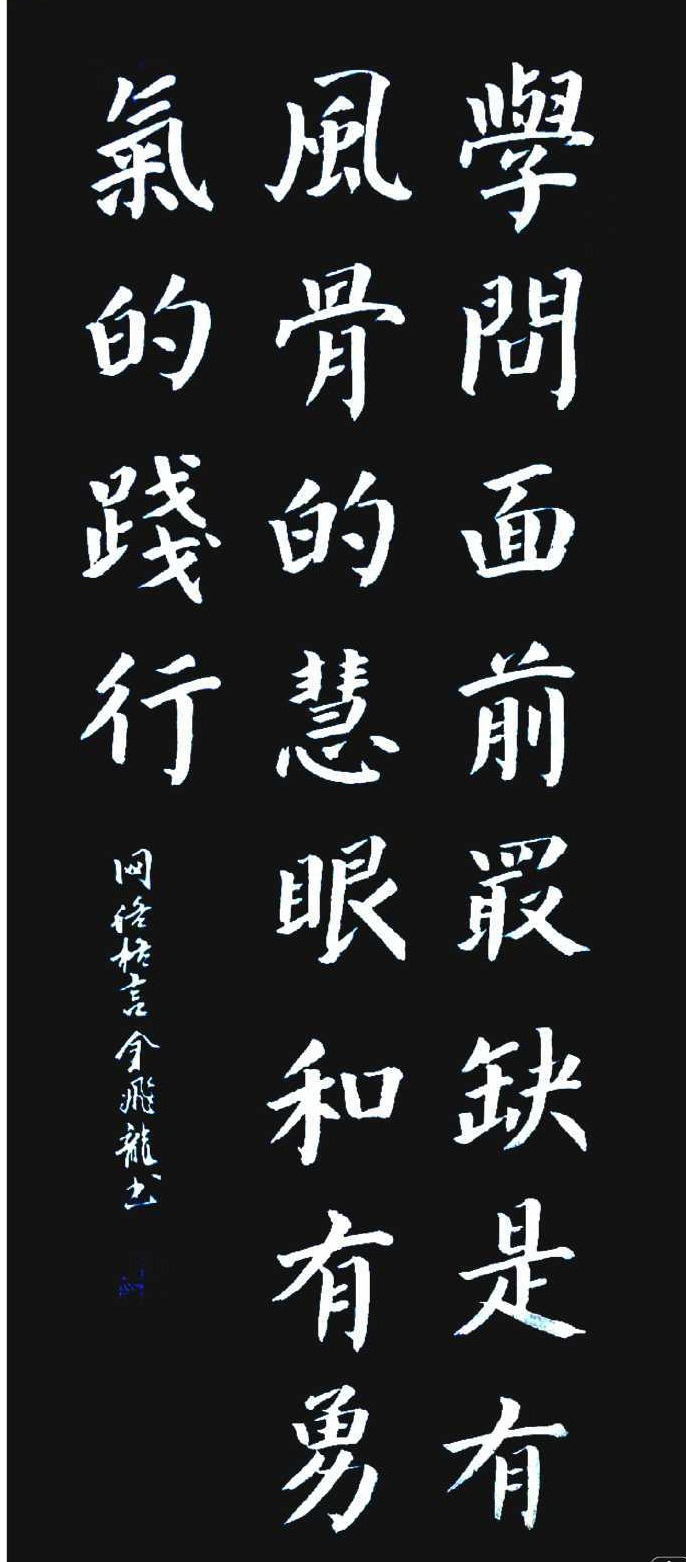 學問面前最缺是有
風骨的慧眼和有勇
氣的踐行
网络格言金飛龍书